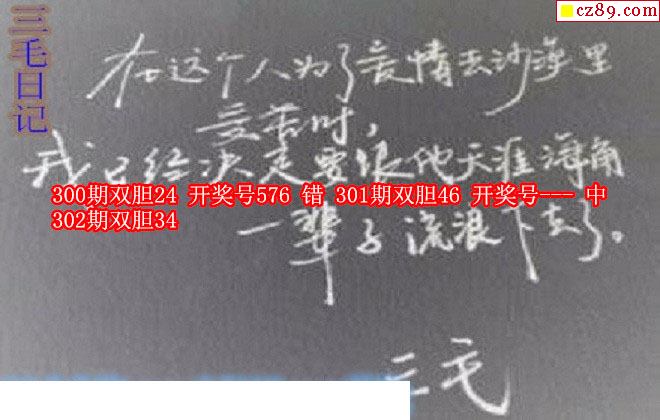 cz89.com
三毛日记
在这个人为了爱情去沙漠里
受苦时，
我已经决定要跟他天涯海角
300期双胆24 开奖号576 错 301期双胆46 开奖号--- 中
302期双胆34
一辈子流浪下去了。
三毛